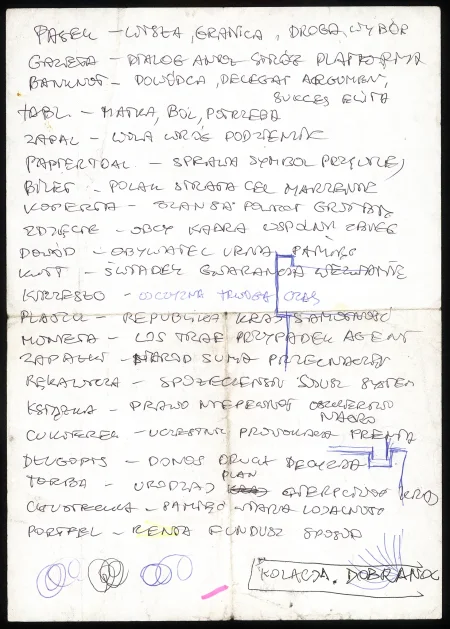 PASEK – WISŁA, GRANICA, DROGA, WYBÓR
GAZETA – DIALOG ANIOŁ STRÓŻ PLATFORMA
BANKNOT – DOWÓDCA, DELEGAT ARGUMENT,
SUKCES ELITA
TABL. – MATKA, BÓL, POTRZEBA
ZAPAL – WOLA WRÓG PODZIEMIE
PAPIER TOAL – SPRAWA SYMBOL PRZYWILEJ
BILET – POLAK STRATA CEL MARZENIE
KOPERTA – SZANSA POWRÓT
ZDJĘCIE – OBCY KADRA WSPÓLNY ZABIEG
DOWÓD – OBYWATEL URNA PAMIĘĆ
KWIT – ŚWIADEK GWARANCJA WEZWANIE
KRZESŁO – OJCZYZNA TRWOGA CZAS
PLASTER – REPUBLIKA KRAJ SAMOTNOŚĆ
MONETA – LOS TRAF PRZYPADEK AGENT
ZAPAŁKI – NARÓD SUMA
RĘKAWICZKA – SPOŁECZEŃSTWO SOJUSZ SYSTEM
KSIĄŻKA – PRAWO NIEPEWNOŚĆ
CUKIEREK – UCZESTNIK PROWOKACJA PREMIA
DŁUGOPIS – DONOS DRUGI DECYZJA
PLAN
TORBA – URODZAJ KRAJ
CHUSTECZKA – PAMIĘĆ WIARA LOJALNOŚĆ
PORTFEL – RENTA FUNDUSZ SPOSÓB
KOLACJA. DOBRANOC